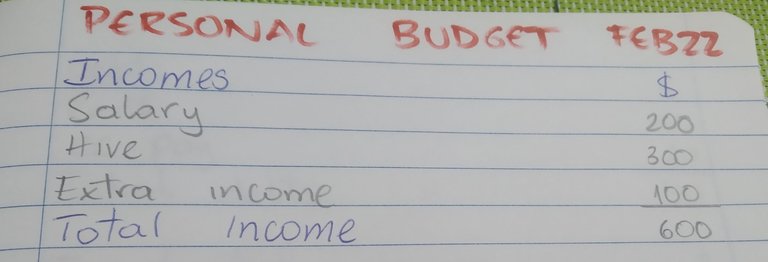 PERSONAL BUDGET FEB22
Incomes $
Salary 200
Hive 300
Extra income 100
Total Income 600